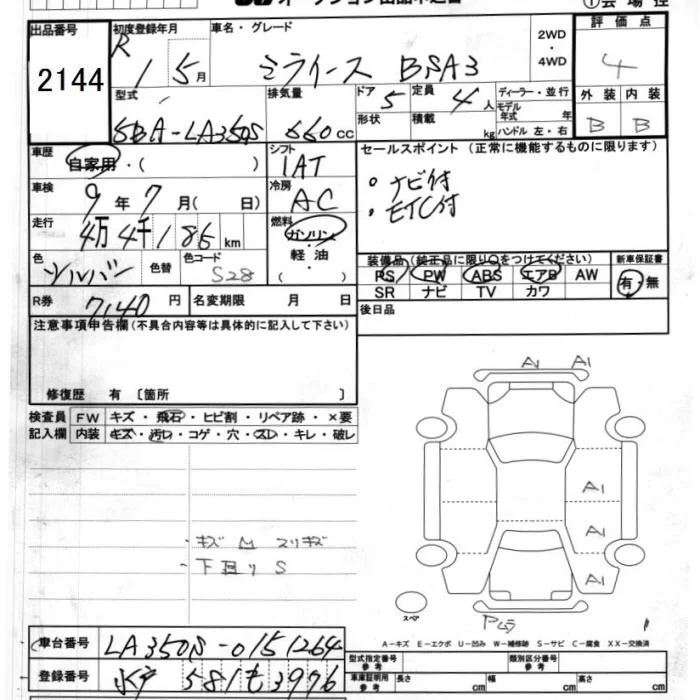 オークション出品申込書 ①会場控
出品番号 初度登録年月 車名・グレード 2WD 評価点
2144 R 1 5月 ミライース BSA3 ・4WD 4
型式 排気量 ドア 定員 ディーラー・並行 外装 内装
5BA-LA350S 660cc 5 4人 モデル年式 年 B B
形状 積載 kg ハンドル 左・右
車歴 自家用・( ) シフト 1AT セールスポイント(正常に機能するものに限ります)
車検 9年7月( 日) 冷房 AC 。ナビ付
走行 4万4千186km 燃料 ガソリン ・ETC付
色 シルバー 色替 色コード S28 軽油 ( ) 装備品(純正品に限り○をつけてください) 新車保証書
PS PW ABS エアB AW 有・無
R券 7140円 名変期限 月 日 SR ナビ TV カワ
注意事項申告欄(不具合内容等は具体的に記入して下さい) 後日品
修復歴 有 〔箇所 〕
検査員 FW キズ・飛石・ヒビ割・リペア跡・×要
記入欄 内装 キズ・汚れ・コゲ・穴・スレ・キレ・破レ
A1 A1
A1
A1
A1
・キズ M スリキズ
・下回り S
スペア
Pムラ
A-キズ E-エクボ U-凹み W-補修跡 S-サビ C-腐食 XX-交換済
車台番号 LA350S-0151264
型式指定番号 参考 類別区分番号 参考
登録番号 水戸 581 も 3976
車庫証明用 参考 長さ cm 幅 cm 高さ cm